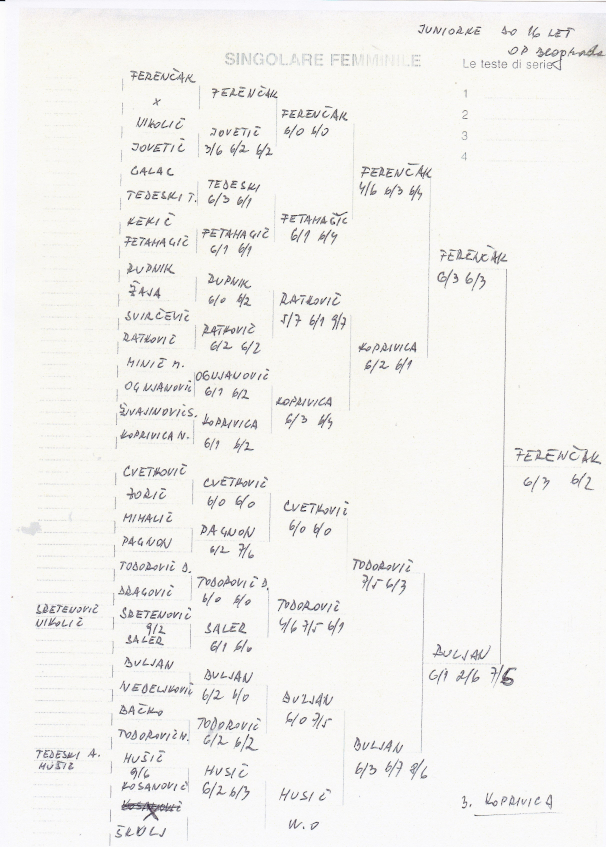 JUNIORKE DO 16 LET
OP Beograda
SINGOLARE FEMMINILE
Le teste di serie
1
2
3
4
FERENČAK
X
NIKOLIČ
JOVETIČ
GALAC
TEDESKI T.
KEKIČ
FETAHAGIČ
RUPNIK
ŽAJA
SVIRČEVIČ
RATKOVIČ
MINIČ M.
OGNJANOVIČ
ŽIVAJINOVIČ S.
KOPRIVICA N.
CVETKOVIČ
ZORIČ
MIHALIČ
PAGNON
TODOROVIČ D.
DRAGOVIČ
SRETENOVIČ
NIKOLIČ
SRETENOVIČ
9/2
SALER
BULJAN
NEDELJKOVIČ
BAČKO
TODOROVIČ N.
TEDESKI A.
HUŠIČ
HUŠIČ
9/6
KOSANOVIČ
ŠKULJ
FERENČAK
JOVETIČ
3/6 6/2 6/2
TEDESKI
6/3 6/1
FETAHAGIČ
6/1 6/1
RUPNIK
6/0 6/2
RATKOVIČ
6/2 6/2
OGNJANOVIČ
6/1 6/2
KOPRIVICA
6/1 6/2
CVETKOVIČ
6/0 6/0
PAGNON
6/2 7/6
TODOROVIČ D.
6/0 6/0
SALER
6/1 6/0
BULJAN
6/2 6/0
TODOROVIČ
6/2 6/2
HUSIČ
6/2 6/3
FERENČAK
6/0 6/0
FETAHAGIČ
6/1 6/4
RATKOVIČ
5/7 6/1 9/7
KOPRIVICA
6/3 6/4
CVETKOVIČ
6/0 6/0
TODOROVIČ
4/6 7/5 6/1
BULJAN
6/0 7/5
HUSIČ
W.O
FERENČAK
4/6 6/3 6/4
KOPRIVICA
6/2 6/1
TODOROVIČ
7/5 6/3
BULJAN
6/3 6/7 8/6
FERENČAK
6/3 6/3
BULJAN
6/1 2/6 7/5
FERENČAK
6/3 6/2
3. KOPRIVICA